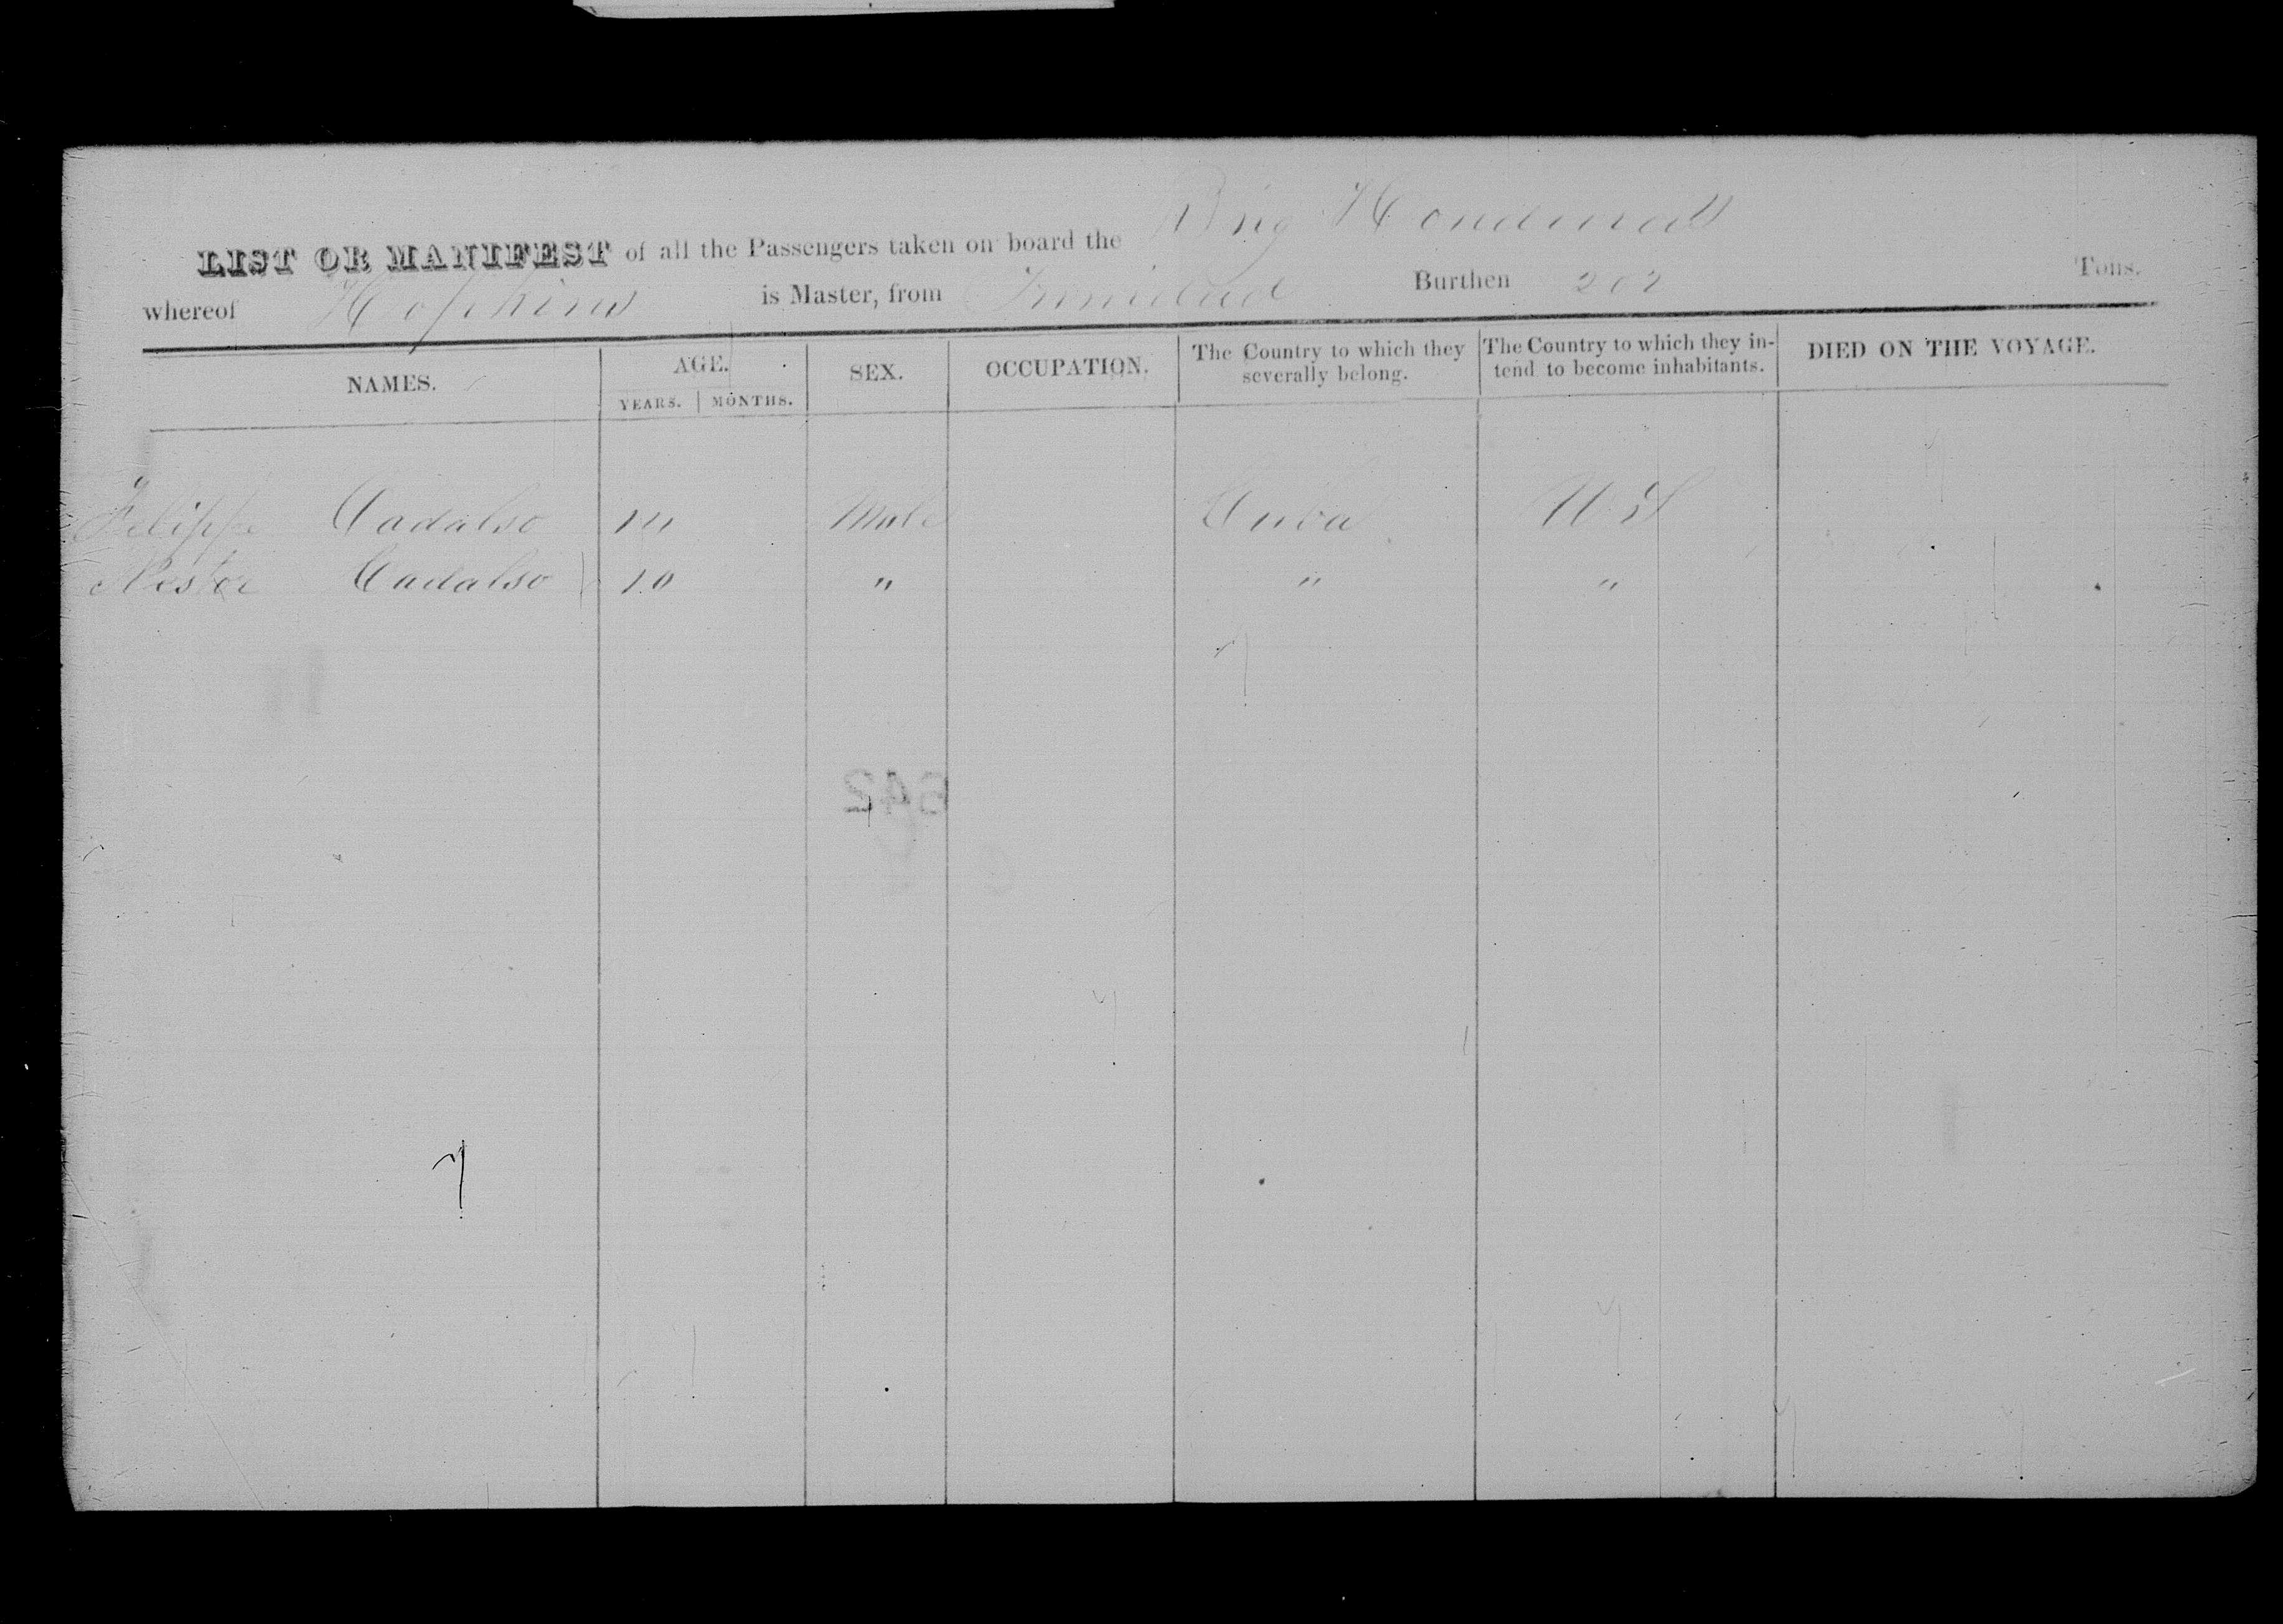 LIST OR MANIFEST of all the Passengers taken on board the Brig Honduras
whereof Hopkins is Master, from Trinidad Burthen 202 Tons.
NAMES. AGE. SEX. OCCUPATION. The Country to which they severally belong. The Country to which they in-tend to become inhabitants. DIED ON THE VOYAGE.
YEARS. MONTHS.
Felippe Cadalso 14 Male Cuba U S
Nestor Cadalso 10 " " "
642